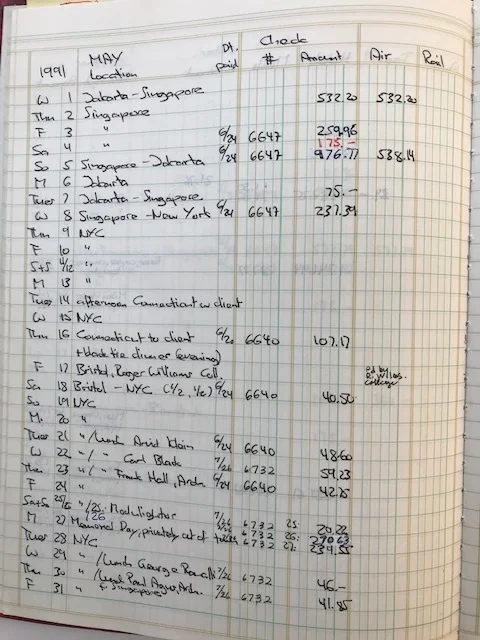 1991 MAY Location Dt. paid Check # Amount Air Rail
W 1 Jakarta - Singapore 532.20 532.20
Thu 2 Singapore
F 3 " 6/24 6647 259.96
Sa 4 " 175.-
So 5 Singapore - Jakarta 6/24 6647 976.77 538.14
M 6 Jakarta
Tues 7 Jakarta - Singapore 75.-
W 8 Singapore - New York 6/24 6647 237.39
Thu 9 NYC
F 10 "
S+S 11/12 "
M 13 "
Tues 14 afternoon Connecticut w client
W 15 NYC
Thu 16 Connecticut to client 6/20 6640 107.17
+ black tie dinner (evening)
F 17 Bristol, Roger Williams Coll. Pd by R. Wllms. College
Sa 18 Bristol - NYC (1/2, 1/2) 6/24 6640 40.50
So 19 NYC
M. 20 "
Tues 21 " /Lunch 6/24 6640 48.60
W 22 " / " Carl Black 7/26 6732 59.23
Thu 23 " / " Frank Hall, Arch. 6/24 6640 42.25
F 24 "
Sa+So 25/26 " /25: Modulightor 7/26 6732 25: 20.22
M 27 Memorial Day, privately out of town 7/26 6732 26: 270.63
Tues 28 NYC 6732 27: 234.55
W 29 " /Lunch George 7/26 6732 46.-
Thu 30 " / Paul Arch. 7/26 6732 41.85
F 31 " Singapore